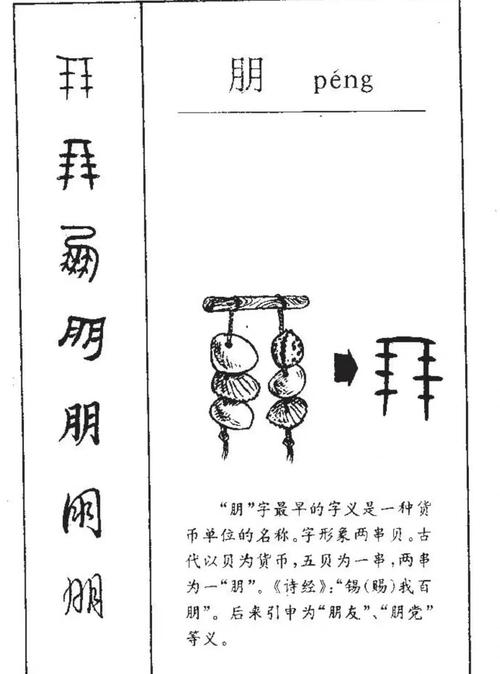 朋 péng
“朋”字最早的字义是一种货
币单位的名称。字形象两串贝。古
代以贝为货币，五贝为一串，两串
为一“朋”。《诗经》：“锡（赐）我百
朋”。后来引申为“朋友”、“朋党”
等义。
朋
朋
朋
朋